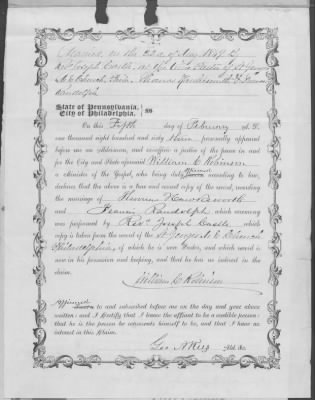 Phila. on the 22d of Nov. 1849 I
Rev Joseph Castle, at the time Pastor of St Georges
M. E. Church, Phila. Thomas Hawksworth & Frances
Randolph
State of Pennsylvania,
City of Philadelphia. } SS
On this Fifth day of February A.D.
one thousand eight hundred and sixty three personally appeared
before me an Alderman, and ex-officio a justice of the peace in and
for the City and State aforesaid William C Robinson
a Minister of the Gospel, who being duly affirmed sworn according to law,
declares that the above is a true and exact copy of the record, recording
the marriage of Thomas Hawksworth
and Frances Randolph which ceremony
was performed by Revd. Joseph Castle which
copy is taken from the record of the St Georges M. E. Church
Philadelphia, of which he is now Pastor, and which record is
now in his possession and keeping, and that he has no interest in the
claim.
William C Robinson
Affirmed Sworn to and subscribed before me on the day and year above
written: and I Certify that I know the affiant to be a credible person:
that he is the person he represents himself to be, and that I have no
interest in this Claim.
Ald. &c.